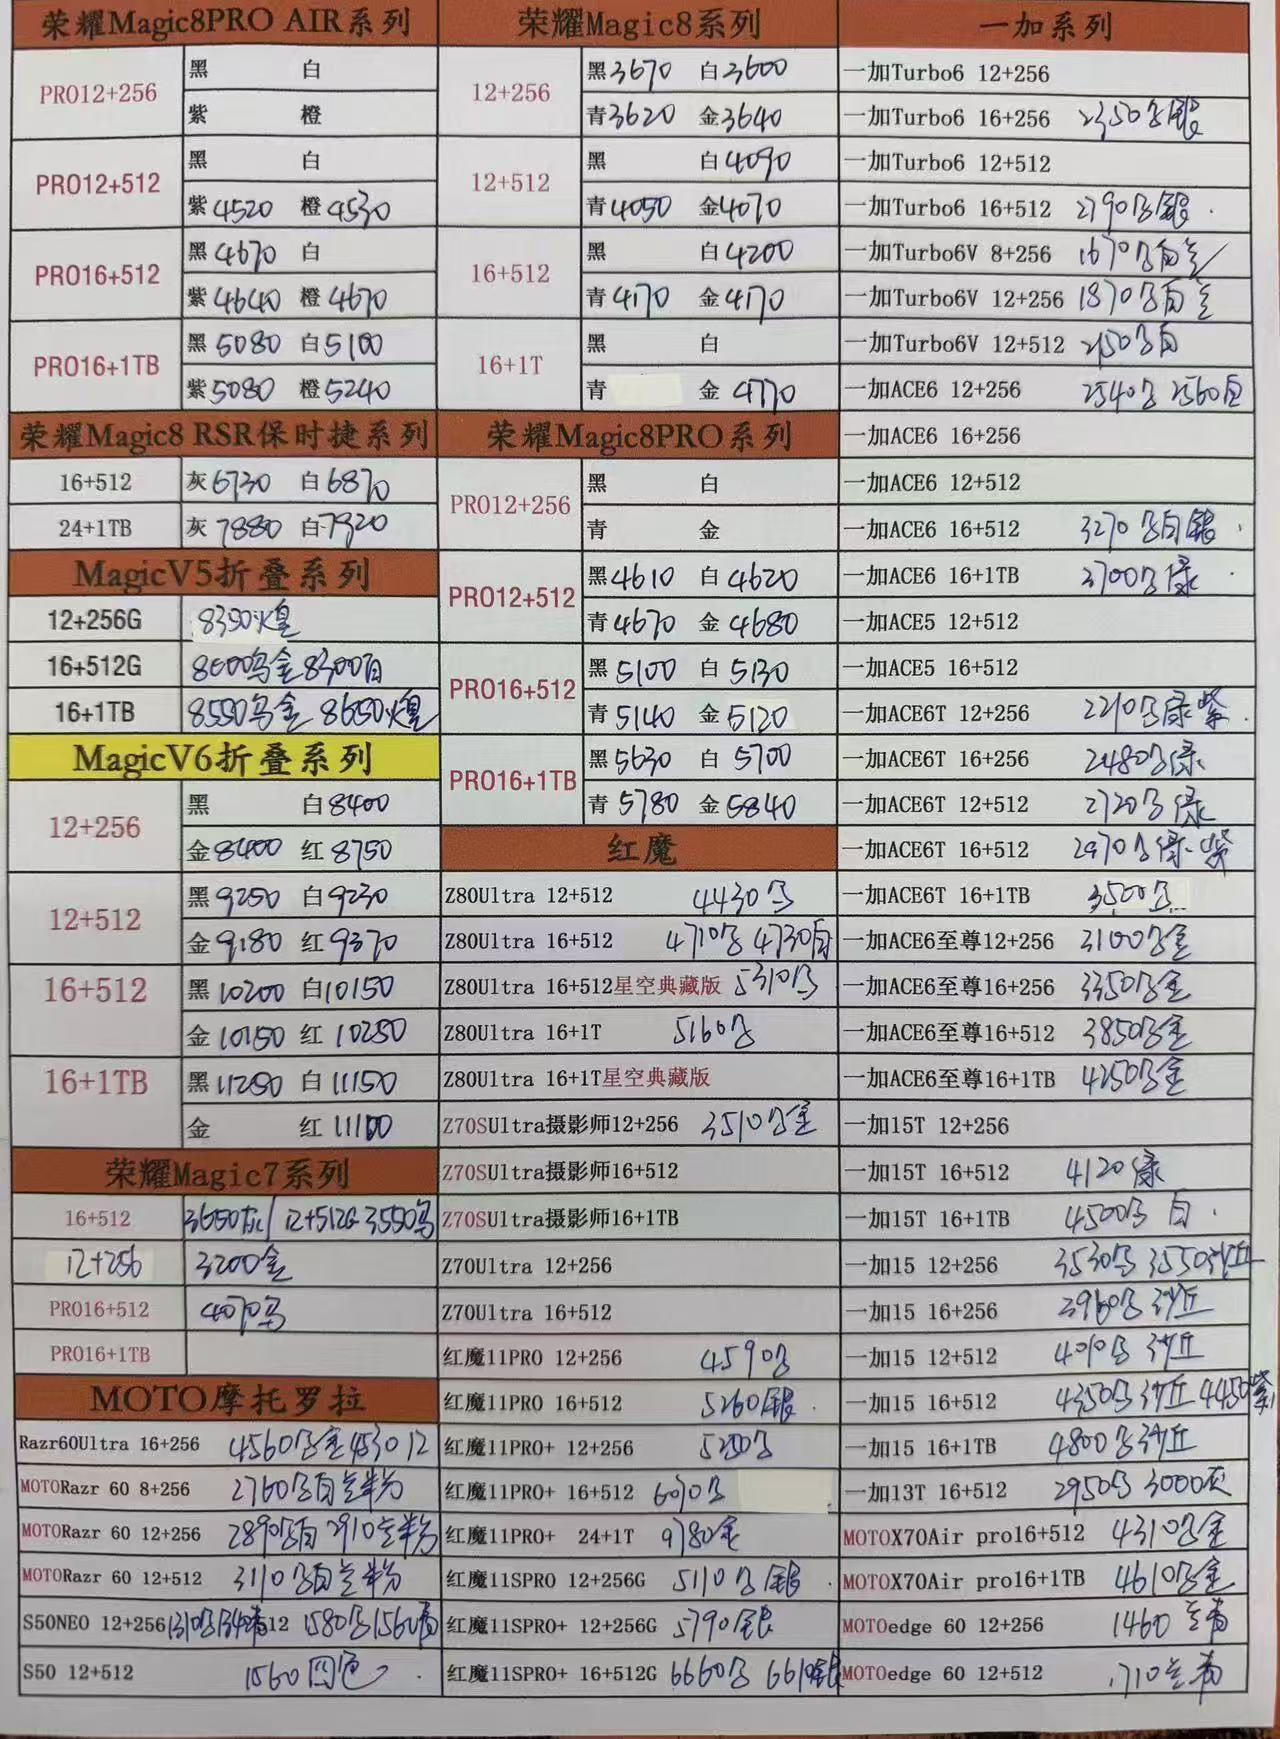 荣耀Magic8PRO AIR系列
PRO12+256 黑 白
紫 橙
PRO12+512 黑 白
紫4520 橙4530
PRO16+512 黑4670 白
紫4640 橙4670
PRO16+1TB 黑5080 白5100
紫5080 橙5240
荣耀Magic8 RSR保时捷系列
16+512 灰6730 白6870
24+1TB 灰7880 白7920
MagicV5折叠系列
12+256G 8350
16+512G 金 8300白
16+1TB 8550乌金 8650
MagicV6折叠系列
12+256 黑 白8400
金8400 红8750
12+512 黑9250 白9230
金9180 红9370
16+512 黑10200 白10150
金10150 红10250
16+1TB 黑11250 白11150
金 红11100
荣耀Magic7系列
16+512 3650灰/12+512G 3550乌
12+256 3200金
PRO16+512 4070乌
PRO16+1TB
MOTO摩托罗拉
Razr60Ultra 16+256 4560乌金4530
MOTORazr 60 8+256 2760乌白兰粉
MOTORazr 60 12+256 2890乌白 2910兰粉
MOTORazr 60 12+512 3110乌白兰粉
S50NEO 12+256 1310乌1340青 512 1580乌1560青
S50 12+512 1560四色
荣耀Magic8系列
12+256 黑3670 白3600
青3620 金3640
12+512 黑 白4090
青4050 金4070
16+512 黑 白4200
青4170 金4170
16+1T 黑 白
青 金4770
荣耀Magic8PRO系列
PRO12+256 黑 白
青 金
PRO12+512 黑4610 白4620
青4670 金4680
PRO16+512 黑5100 白5130
青5140 金5120
PRO16+1TB 黑5630 白5700
青5780 金5840
红魔
Z80Ultra 12+512 4430乌
Z80Ultra 16+512 4710乌 4730白
Z80Ultra 16+512星空典藏版 5310乌
Z80Ultra 16+1T 5160乌
Z80Ultra 16+1T星空典藏版
Z70SUltra摄影师12+256 3510乌金
Z70SUltra摄影师16+512
Z70SUltra摄影师16+1TB
Z70Ultra 12+256
Z70Ultra 16+512
红魔11PRO 12+256 4590乌
红魔11PRO 16+512 5260银
红魔11PRO+ 12+256 5250乌
红魔11PRO+ 16+512 6090乌
红魔11PRO+ 24+1T 9780金
红魔11SPRO 12+256G 5110乌银
红魔11SPRO+ 12+256G 5790银
红魔11SPRO+ 16+512G 6660乌 6610银
一加系列
一加Turbo6 12+256
一加Turbo6 16+256 2350乌银
一加Turbo6 12+512
一加Turbo6 16+512 2790乌银
一加Turbo6V 8+256 1670乌白兰
一加Turbo6V 12+256 1870乌白兰
一加Turbo6V 12+512 2150乌白
一加ACE6 12+256 2540乌 2560白
一加ACE6 16+256
一加ACE6 12+512
一加ACE6 16+512 3270乌白银
一加ACE6 16+1TB 3700乌绿
一加ACE5 12+512
一加ACE5 16+512
一加ACE6T 12+256 2210乌绿紫
一加ACE6T 16+256 2480乌绿
一加ACE6T 12+512 2720乌绿
一加ACE6T 16+512 2970乌绿紫
一加ACE6T 16+1TB 3500乌
一加ACE6至尊12+256 3100乌金
一加ACE6至尊16+256 3350乌金
一加ACE6至尊16+512 3850乌金
一加ACE6至尊16+1TB 4250乌金
一加15T 12+256
一加15T 16+512 4120绿
一加15T 16+1TB 4500乌 白
一加15 12+256 3530乌 3550沙丘
一加15 16+256 3960乌沙丘
一加15 12+512 4010乌 沙丘
一加15 16+512 4350乌沙丘 4450紫
一加15 16+1TB 4800乌沙丘
一加13T 16+512 2950乌 3000灰
MOTOX70Air pro16+512 4310乌金
MOTOX70Air pro16+1TB 4610乌金
MOTOedge 60 12+256 1460 兰青
MOTOedge 60 12+512 1710兰青